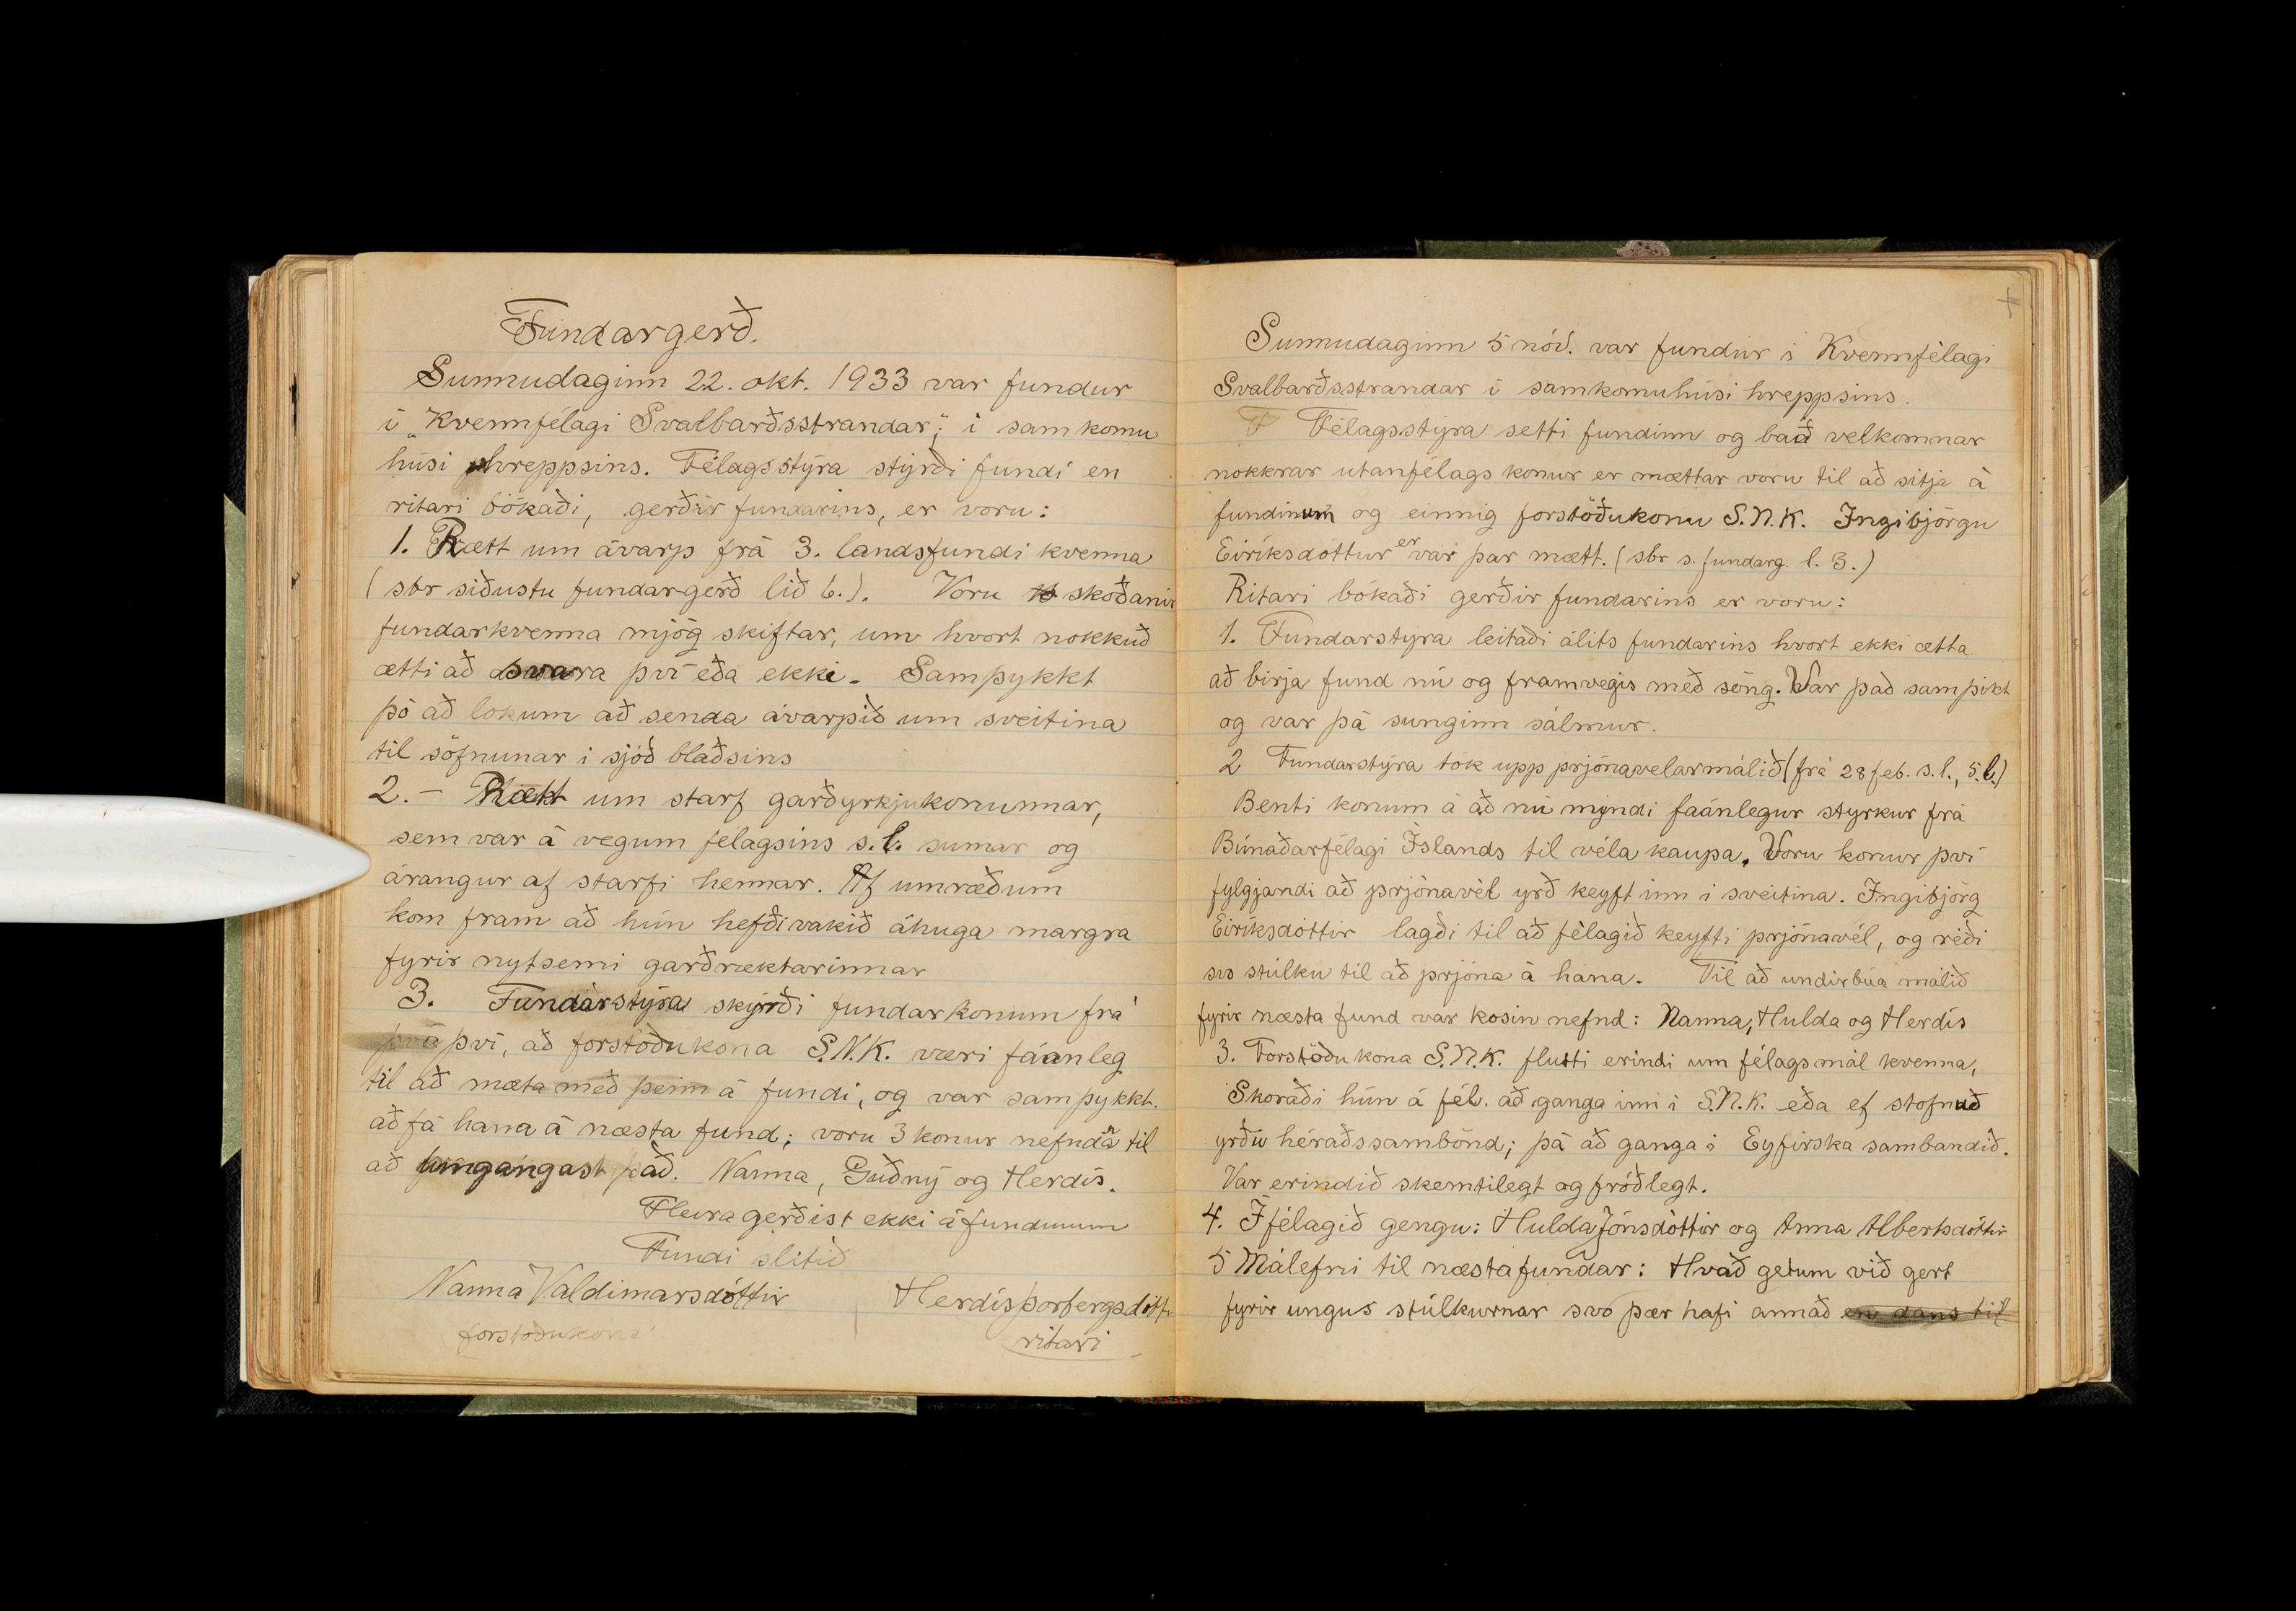 Fundargerð.
Sunnudaginn 22. okt. 1933 var fundur
í "Kvennfélagi Svalbarðsstrandar", í samkomu
húsi hreppsins. Félagsstýra stýrði fundi en
ritari bókaði, gerðir fundarins, er voru:
1. Rætt um ávarp frá 3. landsfundi kvenna
(sbr síðustu fundargerð lið 6.). Voru skoðanir
fundarkvenna mjög skiftar, um hvort nokkuð
ætti að svara því eða ekki. Samþykkt
þó að lokum að senda ávarpið um sveitina
til söfnunar í sjóð blaðsins
2.- Rætt um starf garðyrkjukonunnar,
sem var á vegum félagsins s.l. sumar og
árangur af starfi hennar. Af umræðum
kom fram að hún hefði vakið áhuga margra
fyrir nytsemi garðræktarinnar
3. Fundarstýra skýrði fundarkonum frá
því, að forstöðukona S.N.K. væri fáanleg
til að mæta með þeim á fundi, og var samþykkt.
að fá hana á næsta fund; voru 3 konur nefndar til
að umgangast það. Nanna, Guðný og Herdís.
Fleira gerðist ekki á fundinum
Fundi slitið
Nanna Valdimarsdóttir Herdís Þorbergsdóttir
forstöðukona ritari
Sunnudaginn 5 nóv. var fundur í Kvennfélagi
Svalbarðsstrandar í samkomuhúsi hreppsins.
Félagsstýra setti fundinn og bað velkomnar
nokkrar utanfélags konur er mættar voru til að sitja á
fundinum og einnig forstöðukonu S.N.K. Ingibjörgu
Eiríksdóttur er var þar mætt. (sbr s. fundarg. l. 3.)
Ritari bókaði gerðir fundarins er voru:
1. Fundarstýra leitaði álits fundarins hvort ekki ætta
að birja fund nú og framvegis með söng. Var það samþikt
og var þá sunginn sálmur.
2 Fundarstýra tók upp prjónavelarmálið (frá 28 feb. s.l., 5.l.)
Benti konum á að nú myndi faánlegur styrkur frá
Búnaðarfélagi Íslands til véla kaupa. Voru konur því
fylgjandi að prjónavél yrð keyft inn í sveitina. Ingibjörg
Eiríksdóttir lagði til að félagið keyfti prjónavél, og réði
svo stúlku til að prjóna á hana. Til að undirbúa málið
fyrir næsta fund var kosin nefnd: Nanna, Hulda og Herdís
3. Forstöðukona S.N.K. flutti erindi um félagsmál kvenna,
Skoraði hún á fél. að ganga inn í S.N.K. eða ef stofnuð
yrðu héraðssambönd; þá að ganga í Eyfirska sambandið.
Var erindið skemtilegt og fróðlegt.
4. Í félagið gengu: Hulda Jónsdóttir og Anna Albertsdóttir
5 Málefni til næstafundar: Hvað getum við gert
fyrir ungus stúlkurnar svo þær hafi annað en dans til